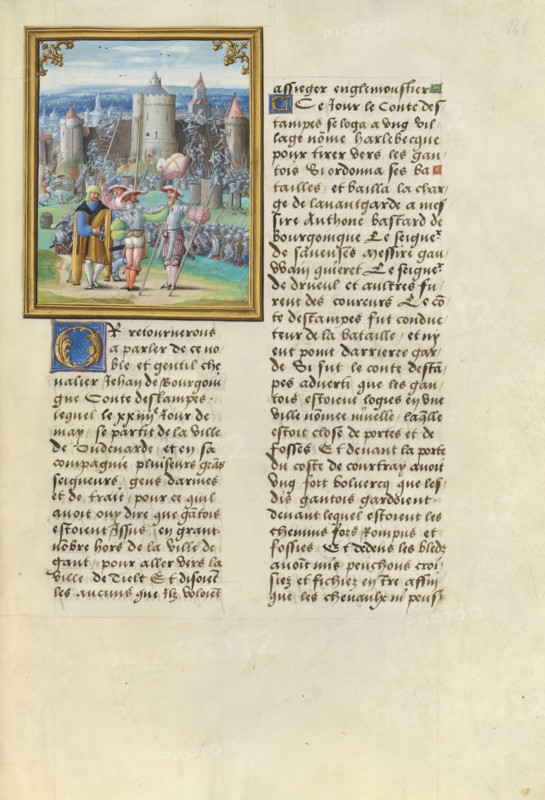 141
Or retournerons
a parler de ce no
ble et gentil che
ualier Jehan de Bourgoin
gne Conte destampes
lequel le xxiiije Jour de
may se partit de la ville
de Audenarde et en sa
compagnie pluiseurs grās
seigneurs gens darmes
et de trait pour ce quil
auoit ouy dire que gātois
estoient Issus en grant
nōbre hors de la ville de
gant pour aller vers la
ville de Tielt Et disoiēt
les aucuns que Ilz voloiēt
assieger englemoustier
Ce Jour le Conte des
tampes se loga a vng vil
lage nōme harlebecque
pour tirer vers les gan
tois Si ordonna ses ba
tailles et bailla la char
ge de lauantgarde a mes
sire Anthone bastard de
Bourgoingne Le seigneʳ
de saueuses Messire gau
wain quieret Le seigneʳ
de drueul et aultres fu
rent des coureurs Le cō
te destampes fut conduc
teur de la bataille et ny
eut point darriere gar
de Si fut le conte destā
pes aduerti que les gan
tois estoient logies en vne
ville nōmee niuelle laq̄lle
estoit close de portes et de
fosses Et deuant la porte
du coste de courtray auoit
vng fort boluercq que les
dis gantois gardoient
deuant lequel estoient les
chemins fors Rompus et
fossies Et dedens les bledz
auoiēt mis peuchons croi
siez et fichiez en tr̄e affin
que les cheuaulx ni peus